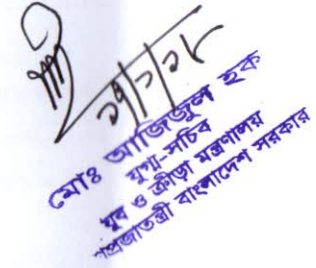 ২৭/১/১৮
মোঃ আজিজুল হক
যুগ্ম-সচিব
যুব ও ক্রীড়া মন্ত্রণালয়
গণপ্রজাতন্ত্রী বাংলাদেশ সরকার